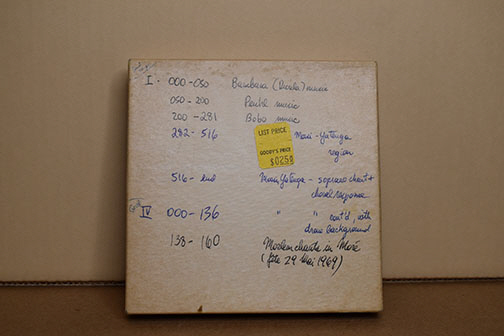 I. 000-050 Bambara (Dioula) music
050-200 Peuhl music
200-281 Bobo music
282-516 Mossi-Yatenga
region
LIST PRICE
GOODY'S PRICE
$0258
516-end Mossi Yatenga - soprano chant +
choral response
IV 000-136 " " cont'd, with
drum background
138-160 Moslem chants in Moré
(fête 29 Mai 1969)